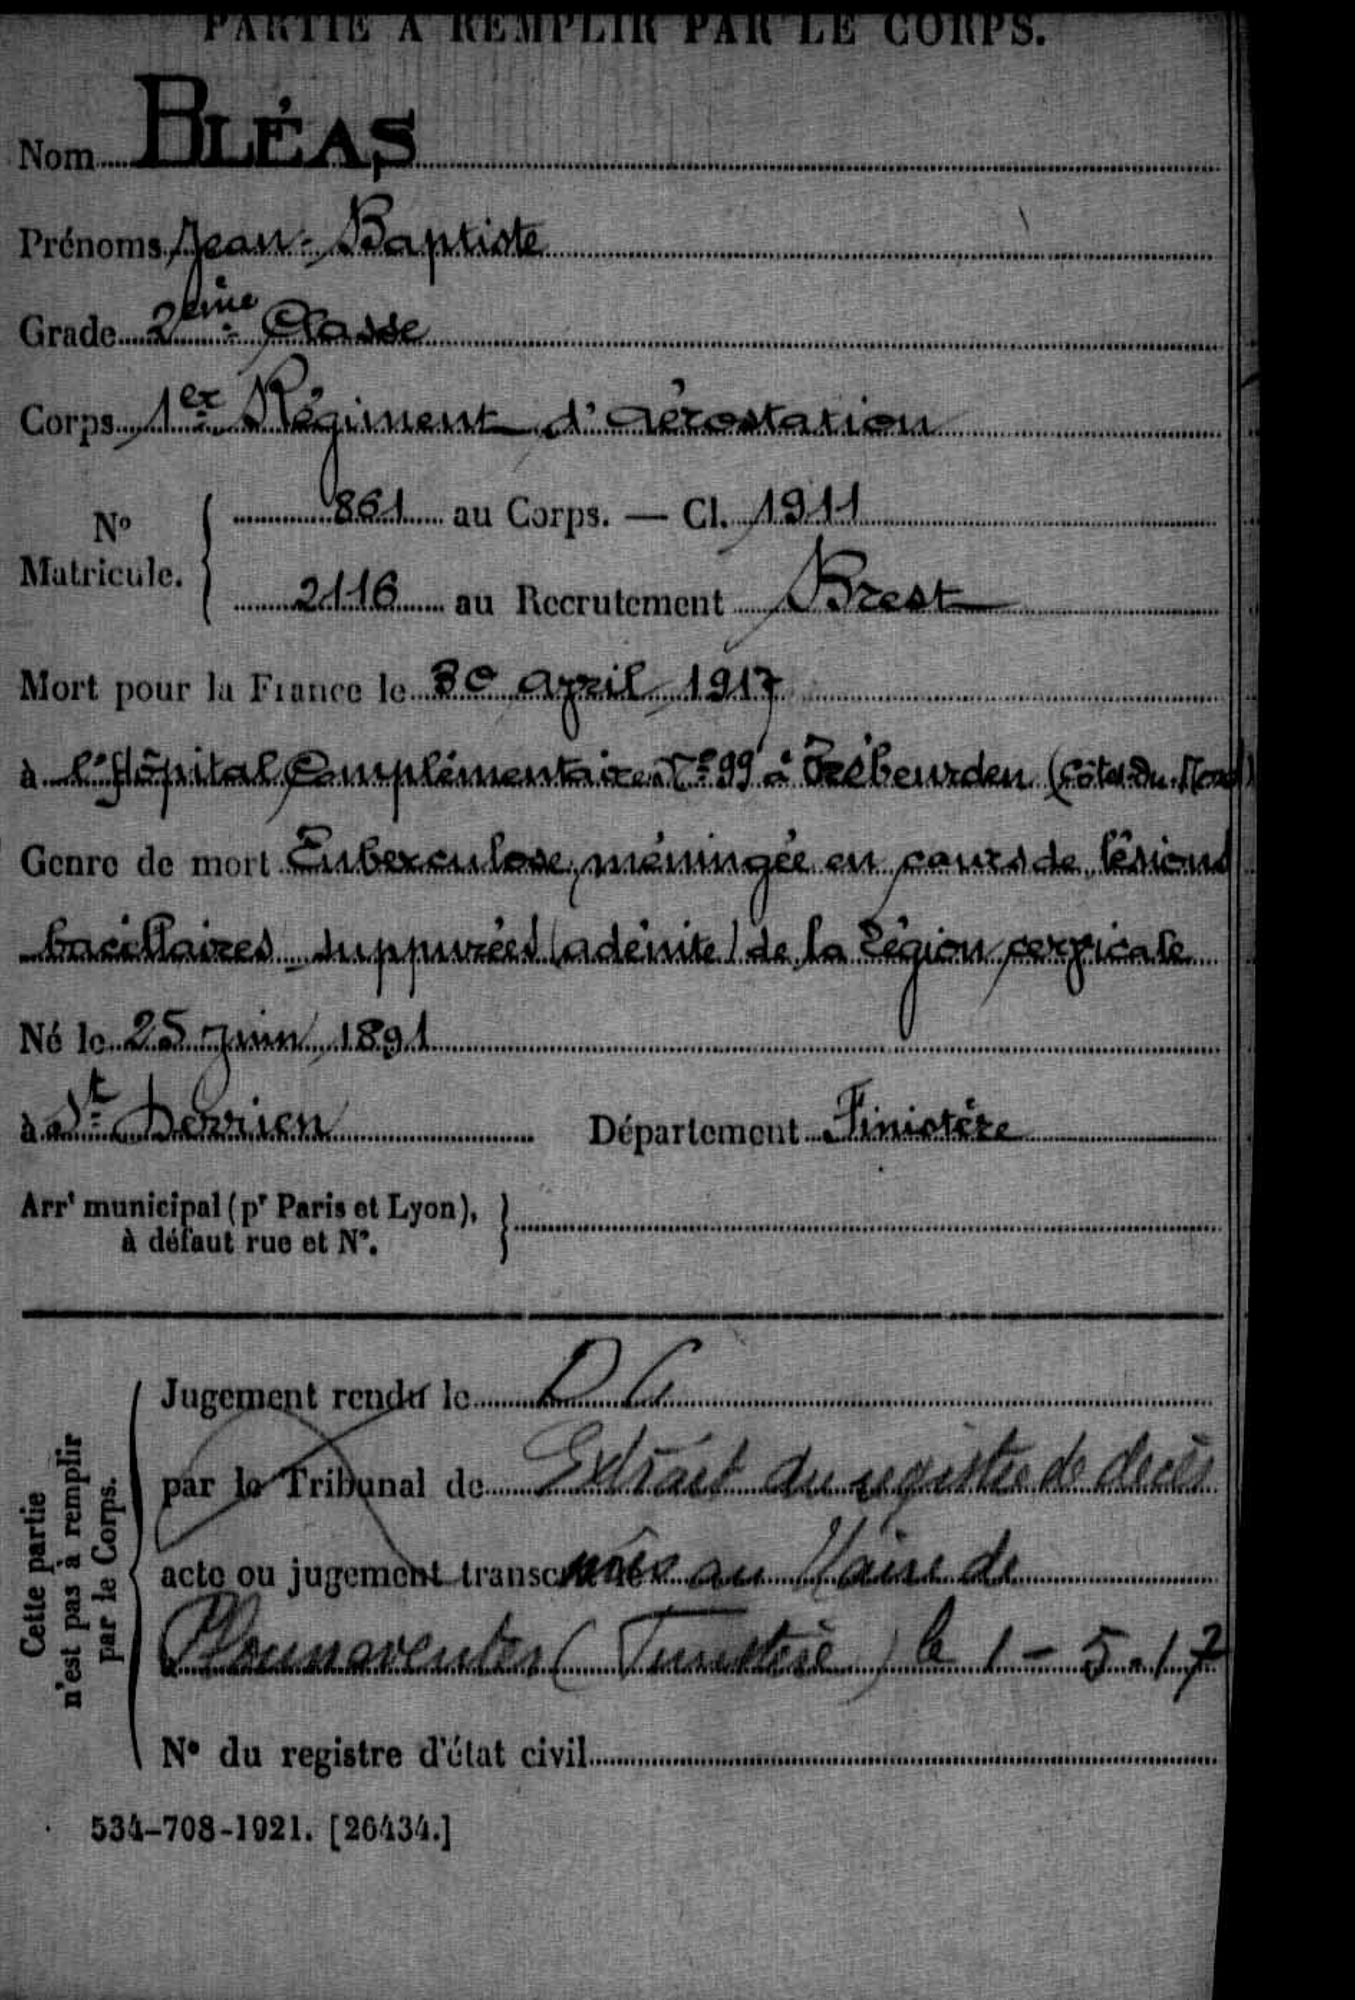 PARTIE A REMPLIR PAR LE CORPS.
Nom BLÉAS
Prénoms Jean-Baptiste
Grade 2ème Classe
Corps 1er Régiment d'aérostation
N° Matricule. 861 au Corps. — Cl. 1911
2116 au Recrutement Brest
Mort pour la France le 30 avril 1917
à l'Hôpital Complémentaire N° 99 à Trébeurden (Côtes-du-Nord)
Genre de mort Tuberculose méningée en cours de lésions
bacillaires suppurées (adénite) de la région cervicale
Né le 25 juin 1891
à St Derrien Département Finistère
Arrt municipal (pr Paris et Lyon),
à défaut rue et N°.
Cette partie
n'est pas à remplir
par le Corps.
Jugement rendu le D C
par le Tribunal de Extrait du registre de décès
acte ou jugement transcrit le au Maire de
Plounéventer (Finistère) le 1-5.17
N° du registre d'état civil
534-708-1921. [26434.]